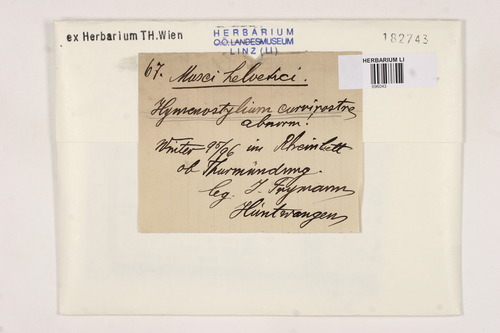 ex Herbarium TH.Wien
HERBARIUM
O.Ö. LANDESMUSEUM
LINZ (LI)
182743
HERBARIUM LI
67. Musci helvetici.
Hymenostylium curvirostre
abnorm.
Winter 95/96 im Rheinbett
ob Thurmündung.
leg. J.
Hüntwangen